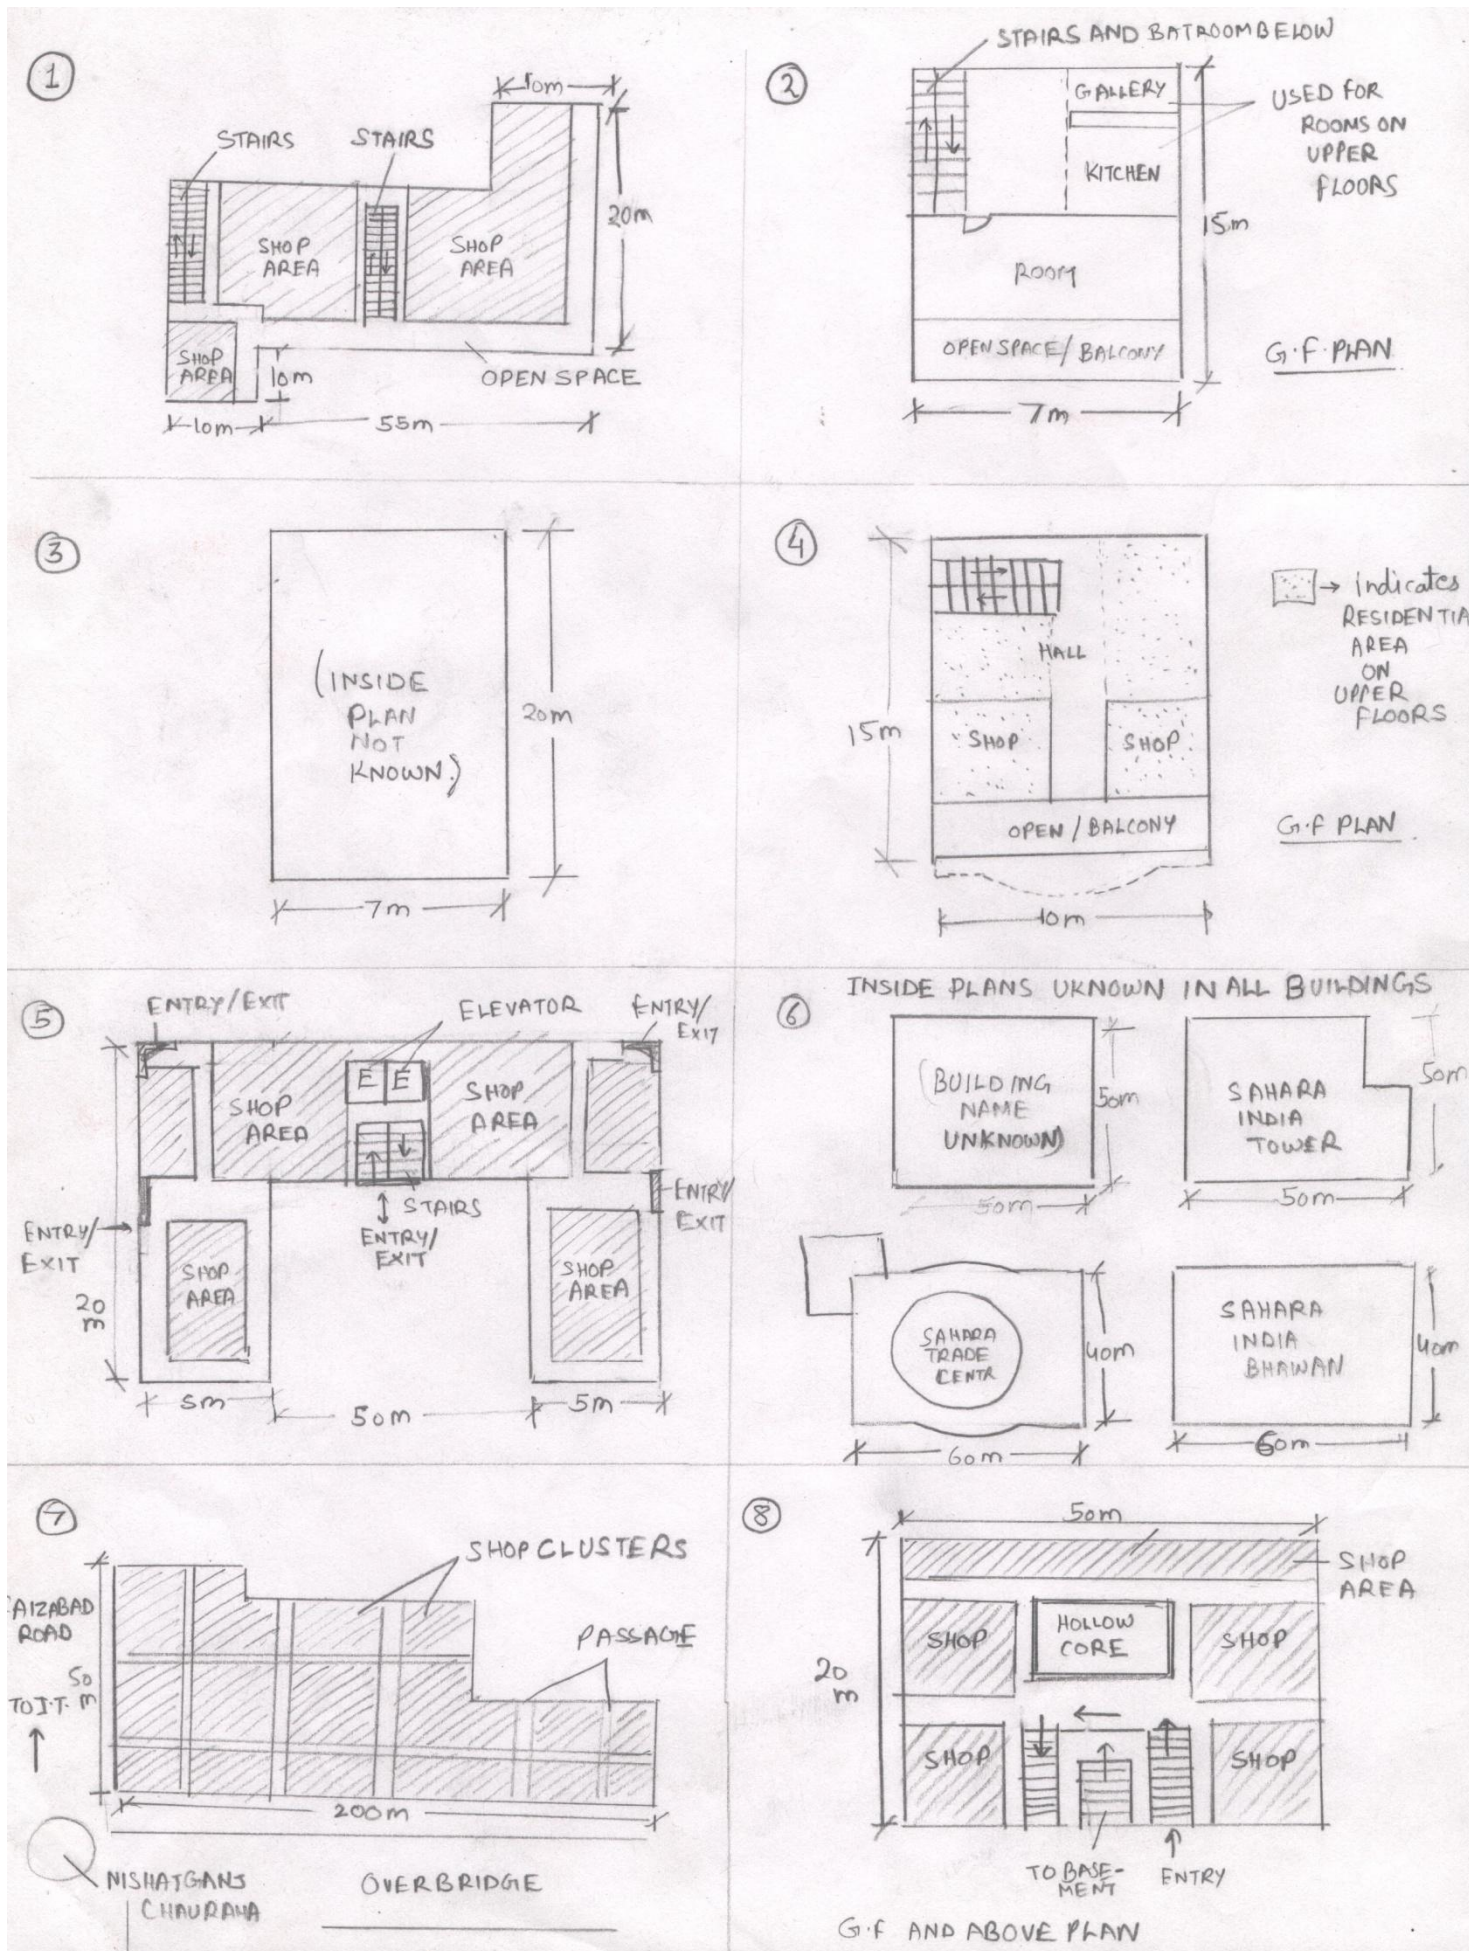 1
10m
STAIRS
STAIRS
20m
SHOP
AREA
SHOP
AREA
SHOP
AREA
10m
OPEN SPACE
10m
55m
2
STAIRS AND BATROOM BELOW
GALLERY
USED FOR
ROOMS ON
UPPER
FLOORS
KITCHEN
15m
ROOM
OPEN SPACE / BALCONY
G.F. PLAN
7m
3
(INSIDE
PLAN
NOT
KNOWN.)
20m
7m
4
→ indicates
RESIDENTIA
AREA
ON
UPPER
FLOORS
HALL
15m
SHOP
SHOP
OPEN / BALCONY
G.F PLAN
10m
5
ENTRY/EXIT
ELEVATOR
ENTRY/
EXIT
E
E
SHOP
AREA
SHOP
AREA
STAIRS
ENTRY/
EXIT
ENTRY/
EXIT
ENTRY/
EXIT
SHOP
AREA
SHOP
AREA
20
m
5m
50m
5m
INSIDE PLANS UKNOWN IN ALL BUILDINGS
6
(BUILDING
NAME
UNKNOWN)
50m
50m
SAHARA
INDIA
TOWER
50m
50m
SAHARA
TRADE
CENTR
40m
60m
SAHARA
INDIA
BHAWAN
40m
60m
7
SHOP CLUSTERS
AIZABAD
ROAD
50
m
TO I.T.
PASSAGE
200m
NISHATGANJ
CHAURAHA
OVERBRIDGE
8
50m
SHOP
AREA
SHOP
HOLLOW
CORE
SHOP
20
m
SHOP
SHOP
TO BASE-
MENT
ENTRY
G.F AND ABOVE PLAN